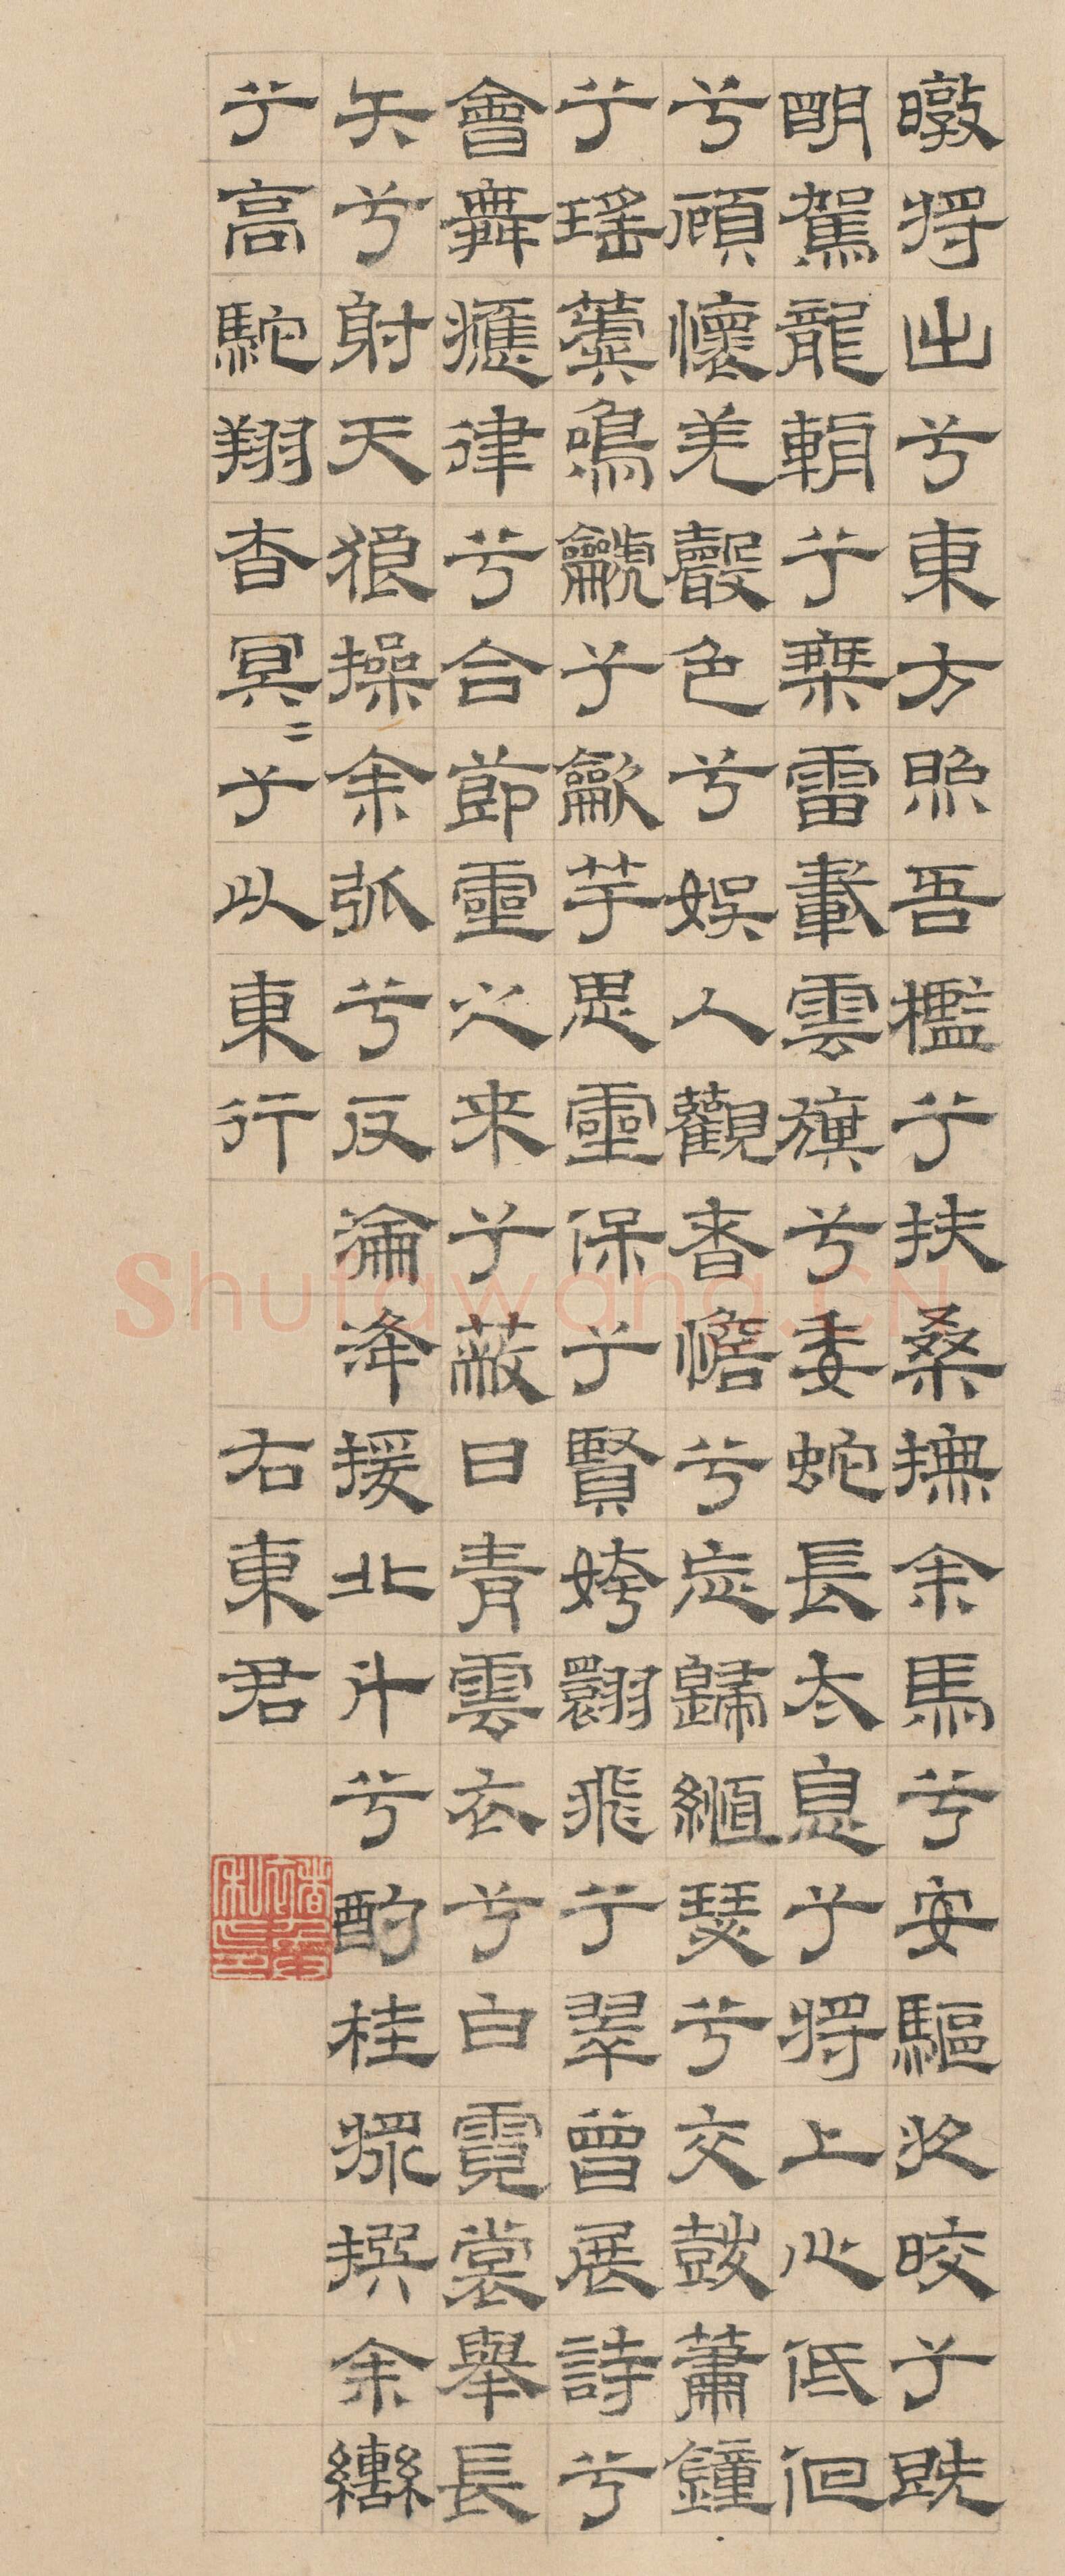 暾將出兮東方照吾檻兮扶桑撫余馬兮安驅夜皎兮既
明駕龍輈兮乘雷載雲旗兮委蛇長太息兮將上心低佪
兮顧懷羌聲色兮娛人觀者憺兮忘歸緪瑟兮交鼓蕭鐘
兮瑤簴鳴䶵兮龡竽思靈保兮賢姱翾飛兮翠曾展詩兮
會舞應律兮合節靈之来兮蔽日青雲衣兮白霓裳舉長
矢兮射天狼操余弧兮反淪降援北斗兮酌桂漿撰余轡
兮高駝翔杳冥〻兮以東行 右東君
Shufawang.CN